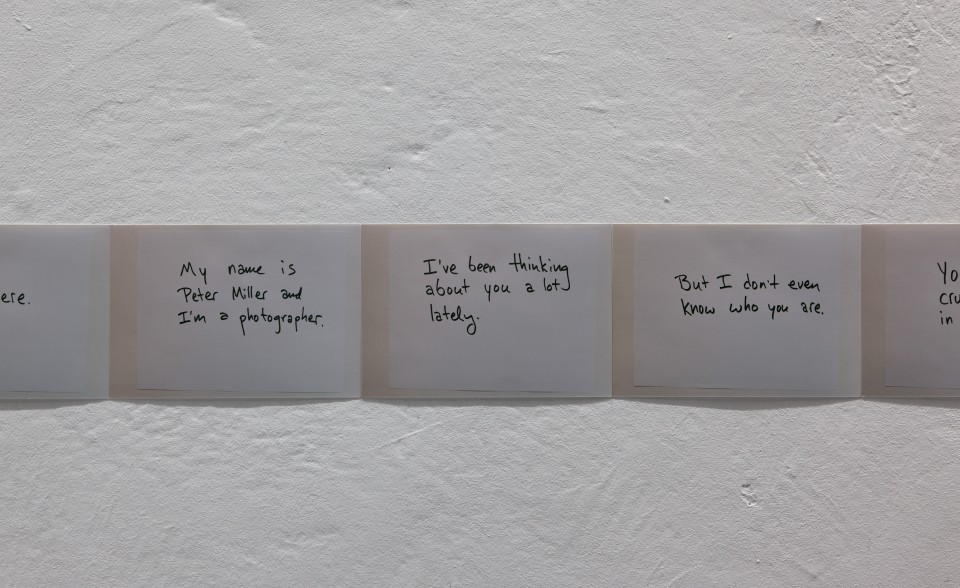 ere.
My name is
Peter Miller and
I'm a photographer.
I've been thinking
about you a lot
lately.
But I don't even
know who you are.
Yo
cru
in